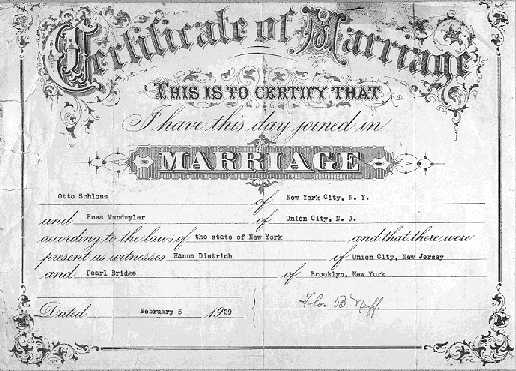 Certificate of Marriage
THIS IS TO CERTIFY THAT
I have this day joined in
MARRIAGE
Otto Schloss of New York City, N. Y.
and of Union City, N. J.
according to the laws of the state of New York and that there were
present as witnesses of Union City, New Jersey
and Pearl Bridge of Brooklyn, New York
Dated February 5